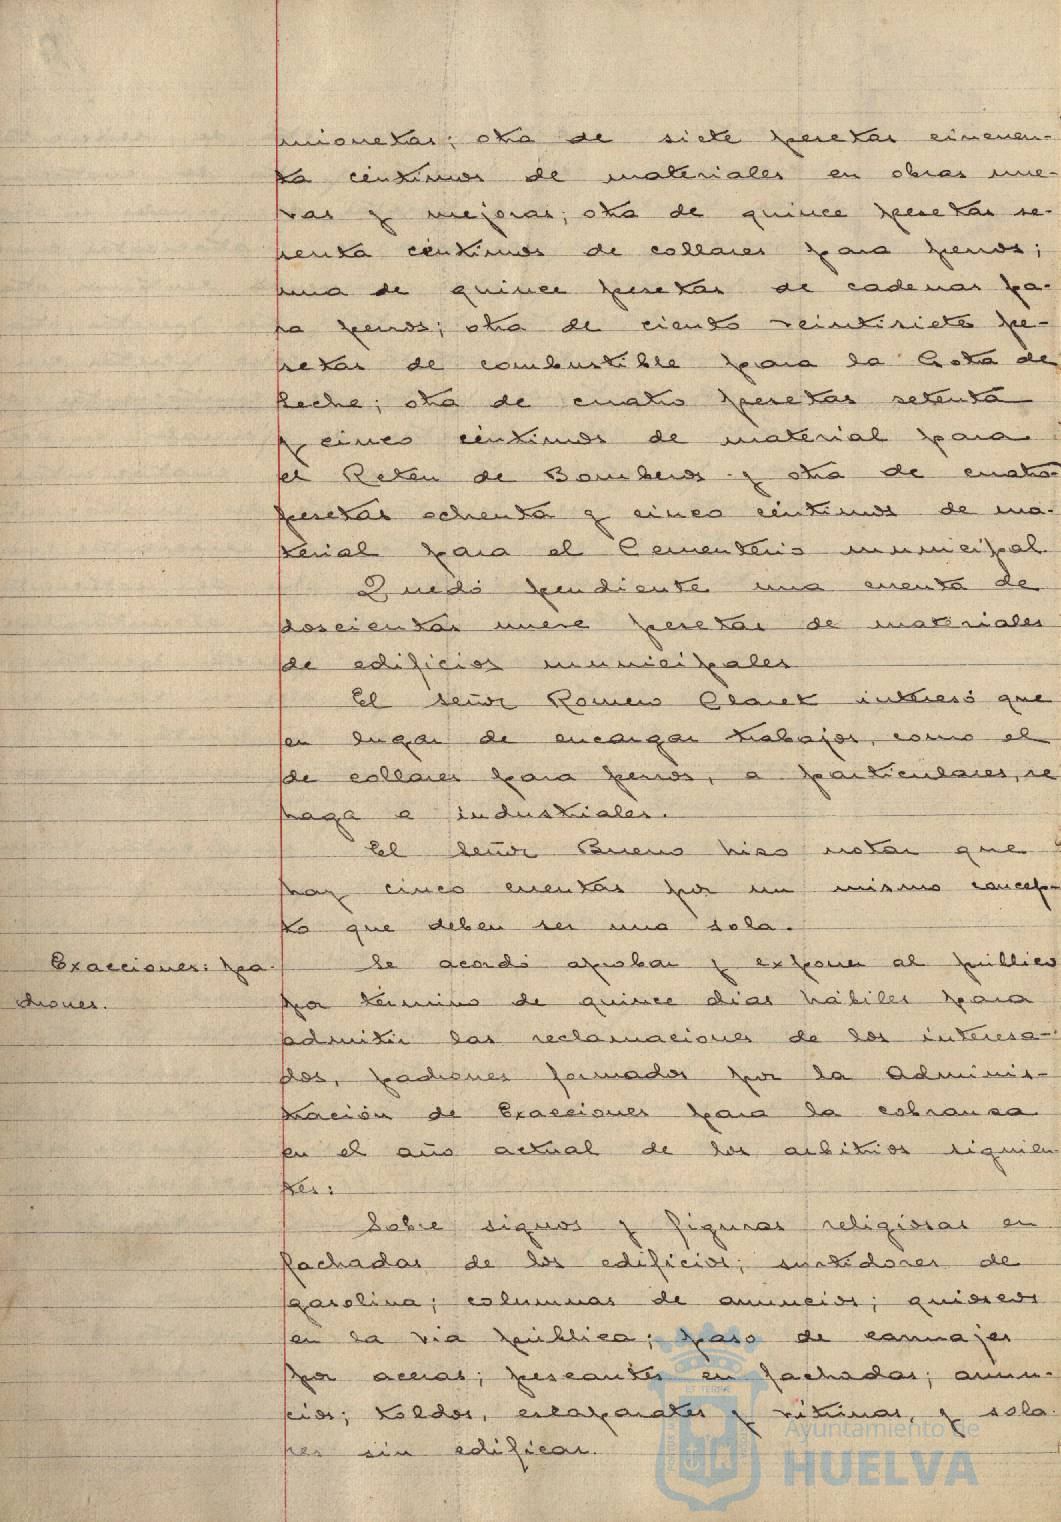 mionetas; otra de siete pesetas cincuen-
ta céntimos de materiales en obras nue-
vas y mejoras; otra de quince pesetas se-
tenta céntimos de collares para perros;
una de quince pesetas de cadenas pa-
ra perros; otra de ciento veintisiete pe-
setas de combustible para la Gota de
Leche; otra de cuatro pesetas setenta
y cinco céntimos de material para
el Reten de Bomberos y otra de cuatro
pesetas ochenta y cinco céntimos de ma-
terial para el Cementerio municipal.
Quedó pendiente una cuenta de
doscientas nueve pesetas de materiales
de edificios municipales
El señor Romero Claret interesó que
en lugar de encargar trabajos, como el
de collares para perros, a particulares, se
haga a industriales.
El señor Bueno hizo notar que
hay cinco cuentas por un mismo concep-
to que deben ser una sola.
Exacciones: pa-
drones.
Se acordó aprobar y exponer al público
por término de quince dias hábiles para
admitir las reclamaciones de los interesa-
dos, padrones formados por la Adminis-
tración de Exacciones para la cobranza
en el año actual de los arbitrios siguien-
tes:
Sobre signos y figuras religiosas en
fachadas de los edificios; surtidores de
gasolina; columnas de anuncios; quioscos
en la via pública; paso de carruajes
por aceras; pescantes en fachadas; anun-
cios; toldos, escaparates y vitrinas, y sola-
res sin edificar.
Ayuntamiento de
HUELVA